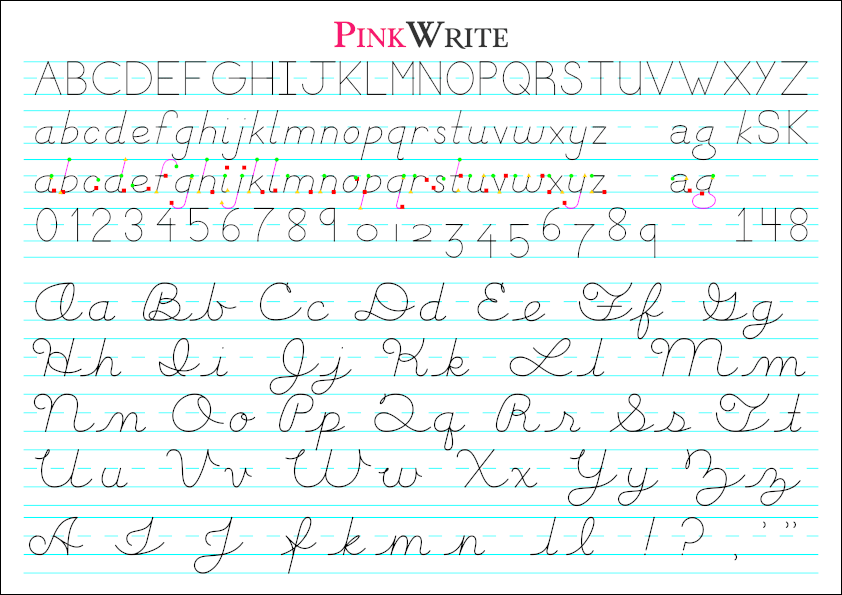 PINKWRITE
ABCDEFGHIJKLMNOPQRSTUVWXYZ
abcdefghijklmnopqrstuvwxyz ag kSK
abcdefghijklmnopqrstuvwxyz ag
0123456789 0123456789 148
Aa Bb Cc Dd Ee Ff Gg
Hh Ii Jj Kk Ll Mm
Nn Oo Pp Qq Rr Ss Tt
Uu Vv Ww Xx Yy Zz
A I J f k m n i l ! ? , ' "